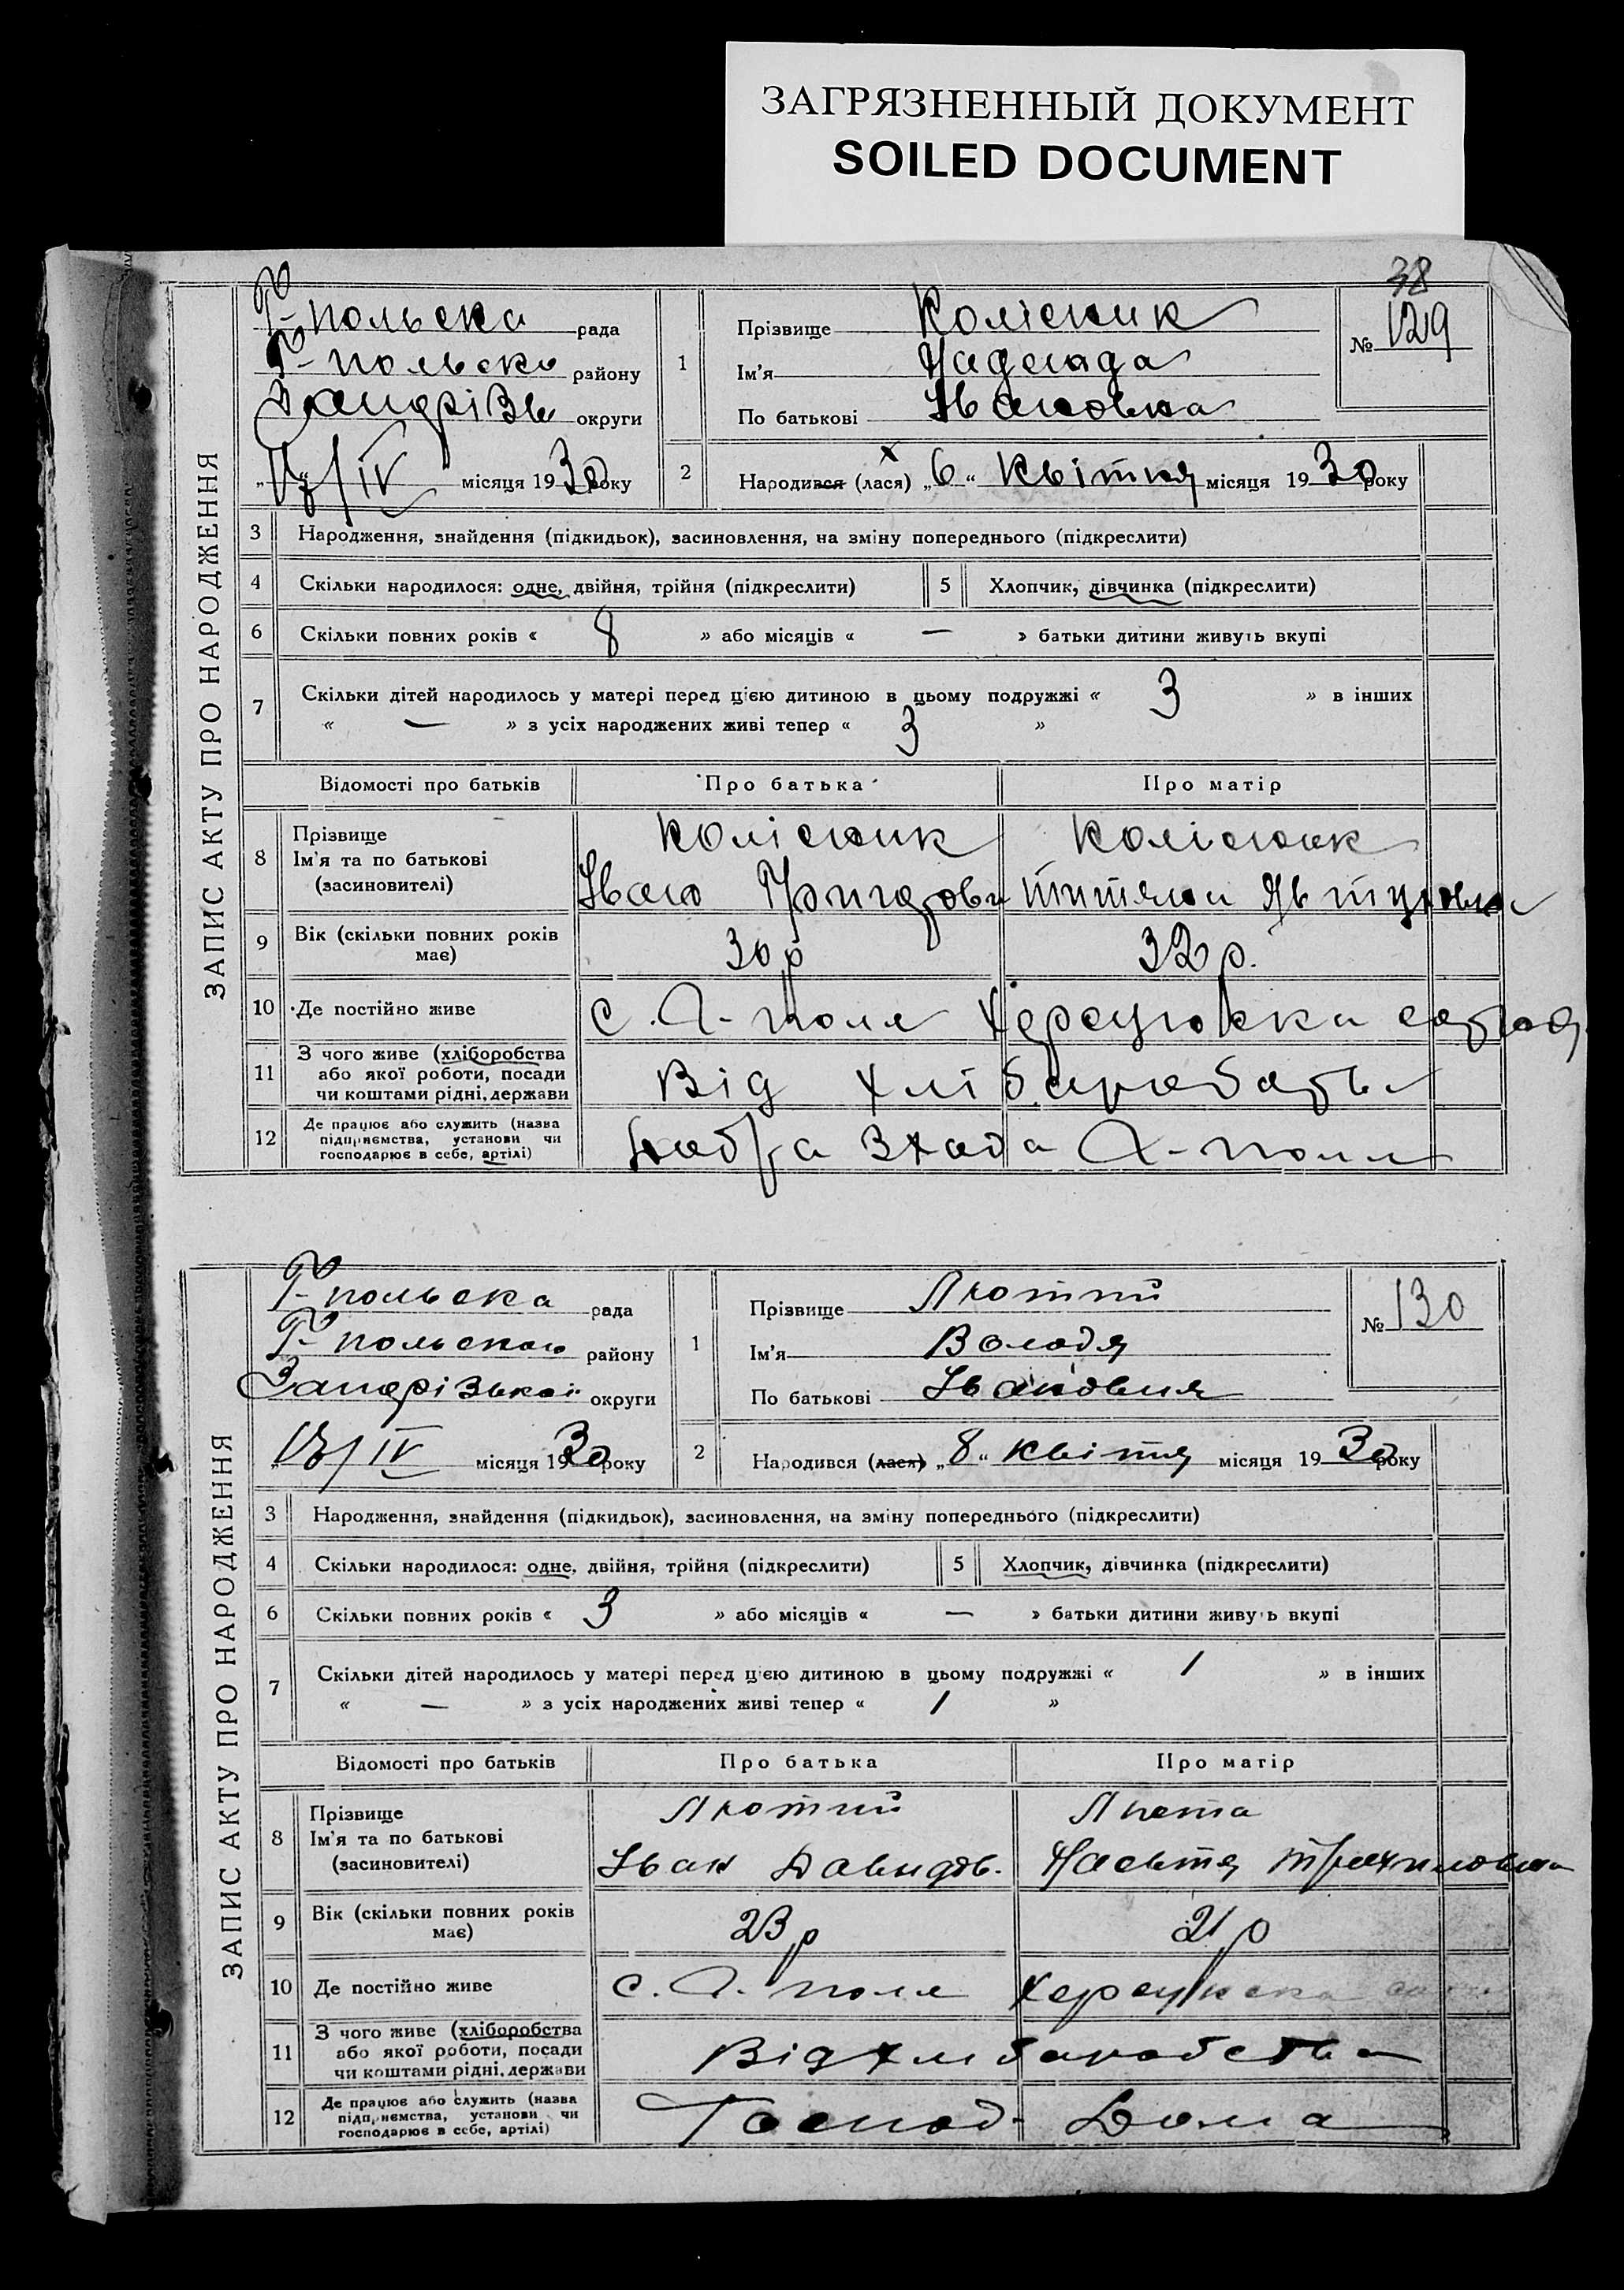 ЗАГРЯЗНЕННЫЙ ДОКУМЕНТ
SOILED DOCUMENT
38
ЗАПИС АКТУ ПРО НАРОДЖЕННЯ
Г-польска рада
Г-польско району
округи
17/IV місяця 1930 року
1
Прізвище Колісник
Ім'я
По батькові Івановна
№ 129
2
Народився (лася) „6“ Квітня місяця 1930 року
3 Народження, знайдення (підкидьок), засиновлення, на зміну попереднього (підкреслити)
4 Скільки народилося: одне, двійня, трійня (підкреслити)
5 Хлопчик, дівчинка (підкреслити)
6 Скільки повних років « 8 » або місяців « — » батьки дитини живуть вкупі
7 Скільки дітей народилось у матері перед цією дитиною в цьому подружжі « 3 » в інших
« — » з усіх народжених живі тепер « 3 »
Відомості про батьків Про батька Про матір
8 Прізвище
Ім'я та по батькові
(засиновителі)
Колісник Колісник
Іван
9 Вік (скільки повних років
має)
30 р 32 р.
10 Де постійно живе
с. Г-поле
11 З чого живе (хліборобства
або якої роботи, посади
чи коштами рідні, держави
Від
12 Де працює або служить (назва
підприємства, установи чи
господарює в себе, артілі)
Г-поля
ЗАПИС АКТУ ПРО НАРОДЖЕННЯ
Г-польска рада
Г-польского району
Запорізької округи
/IV місяця 1930 року
1
Прізвище Лютий
Ім'я Володя
По батькові
№ 130
2
Народився (лася) „8“ квітня місяця 1930 року
3 Народження, знайдення (підкидьок), засиновлення, на зміну попереднього (підкреслити)
4 Скільки народилося: одне, двійня, трійня (підкреслити)
5 Хлопчик, дівчинка (підкреслити)
6 Скільки повних років « 3 » або місяців « — » батьки дитини живуть вкупі
7 Скільки дітей народилось у матері перед цією дитиною в цьому подружжі « 1 » в інших
« — » з усіх народжених живі тепер « 1 »
Відомості про батьків Про батька Про матір
8 Прізвище
Ім'я та по батькові
(засиновителі)
Лютий Люта
Іван Давидов. Настя
9 Вік (скільки повних років
має)
23 р 21 р
10 Де постійно живе
с. Г-поле
11 З чого живе (хліборобства
або якої роботи, посади
чи коштами рідні, держави
Від
12 Де працює або служить (назва
підприємства, установи чи
господарює в себе, артілі)
Господ- Дома